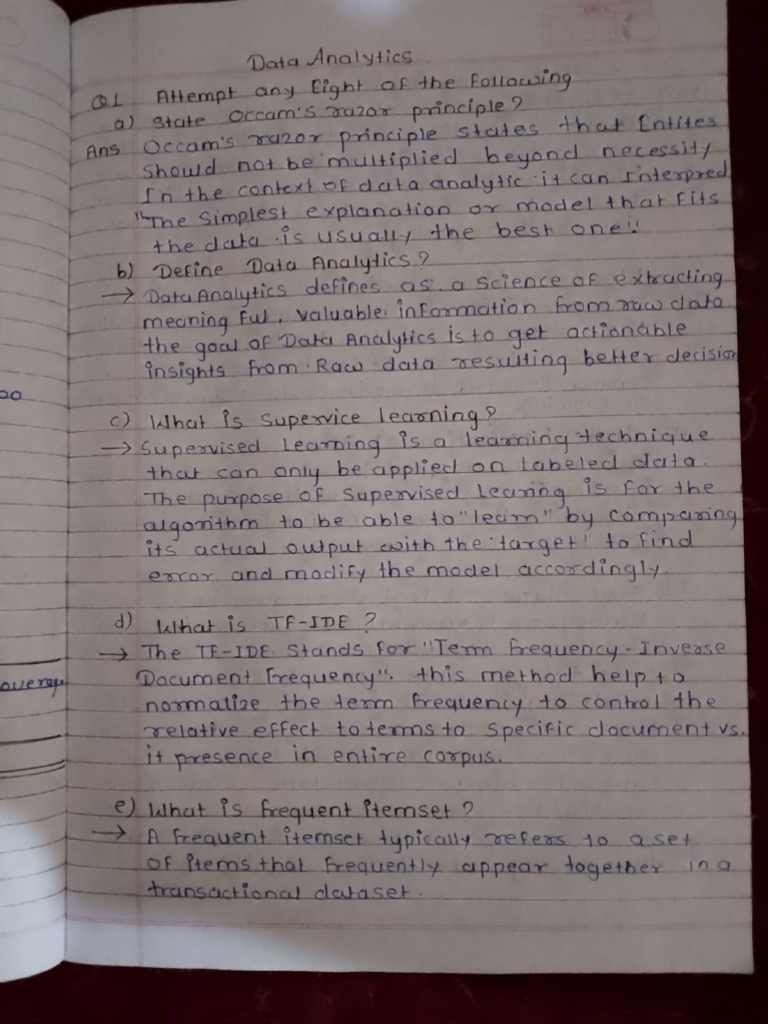 DATE
Data Analytics
Q1 Attempt any Eight of the Following
a) State Occam's razor principle?
Ans Occam's razor principle states that Entites
should not be multiplied beyond necessity
In the context of data analytic it can interpred
"The Simplest explanation or model that fits
the data is usually the best one".
b) Define Data Analytics?
→ Data Analytics defines as a science of extracting
meaning ful, valuable information from raw data
the goal of Data Analytics is to get actionable
insights from Raw data resulting better decision
c) What is supervice learning?
→ Supervised Learning is a learning technique
that can only be applied on labeled data.
The purpose of Supervised Learing is for the
algorithm to be able to "learn" by comparing
its actual output with the "target" to find
error and modify the model accordingly.
d) What is TF-IDE ?
→ The TF-IDE Stands for "Term frequency - Inverse
Document frequency". this method help to
normalize the term frequency to control the
relative effect to terms to specific document vs.
it presence in entire corpus.
e) What is frequent itemset ?
→ A frequent itemset typically refers to a set
of items that frequently appear together in a
transactional dataset.